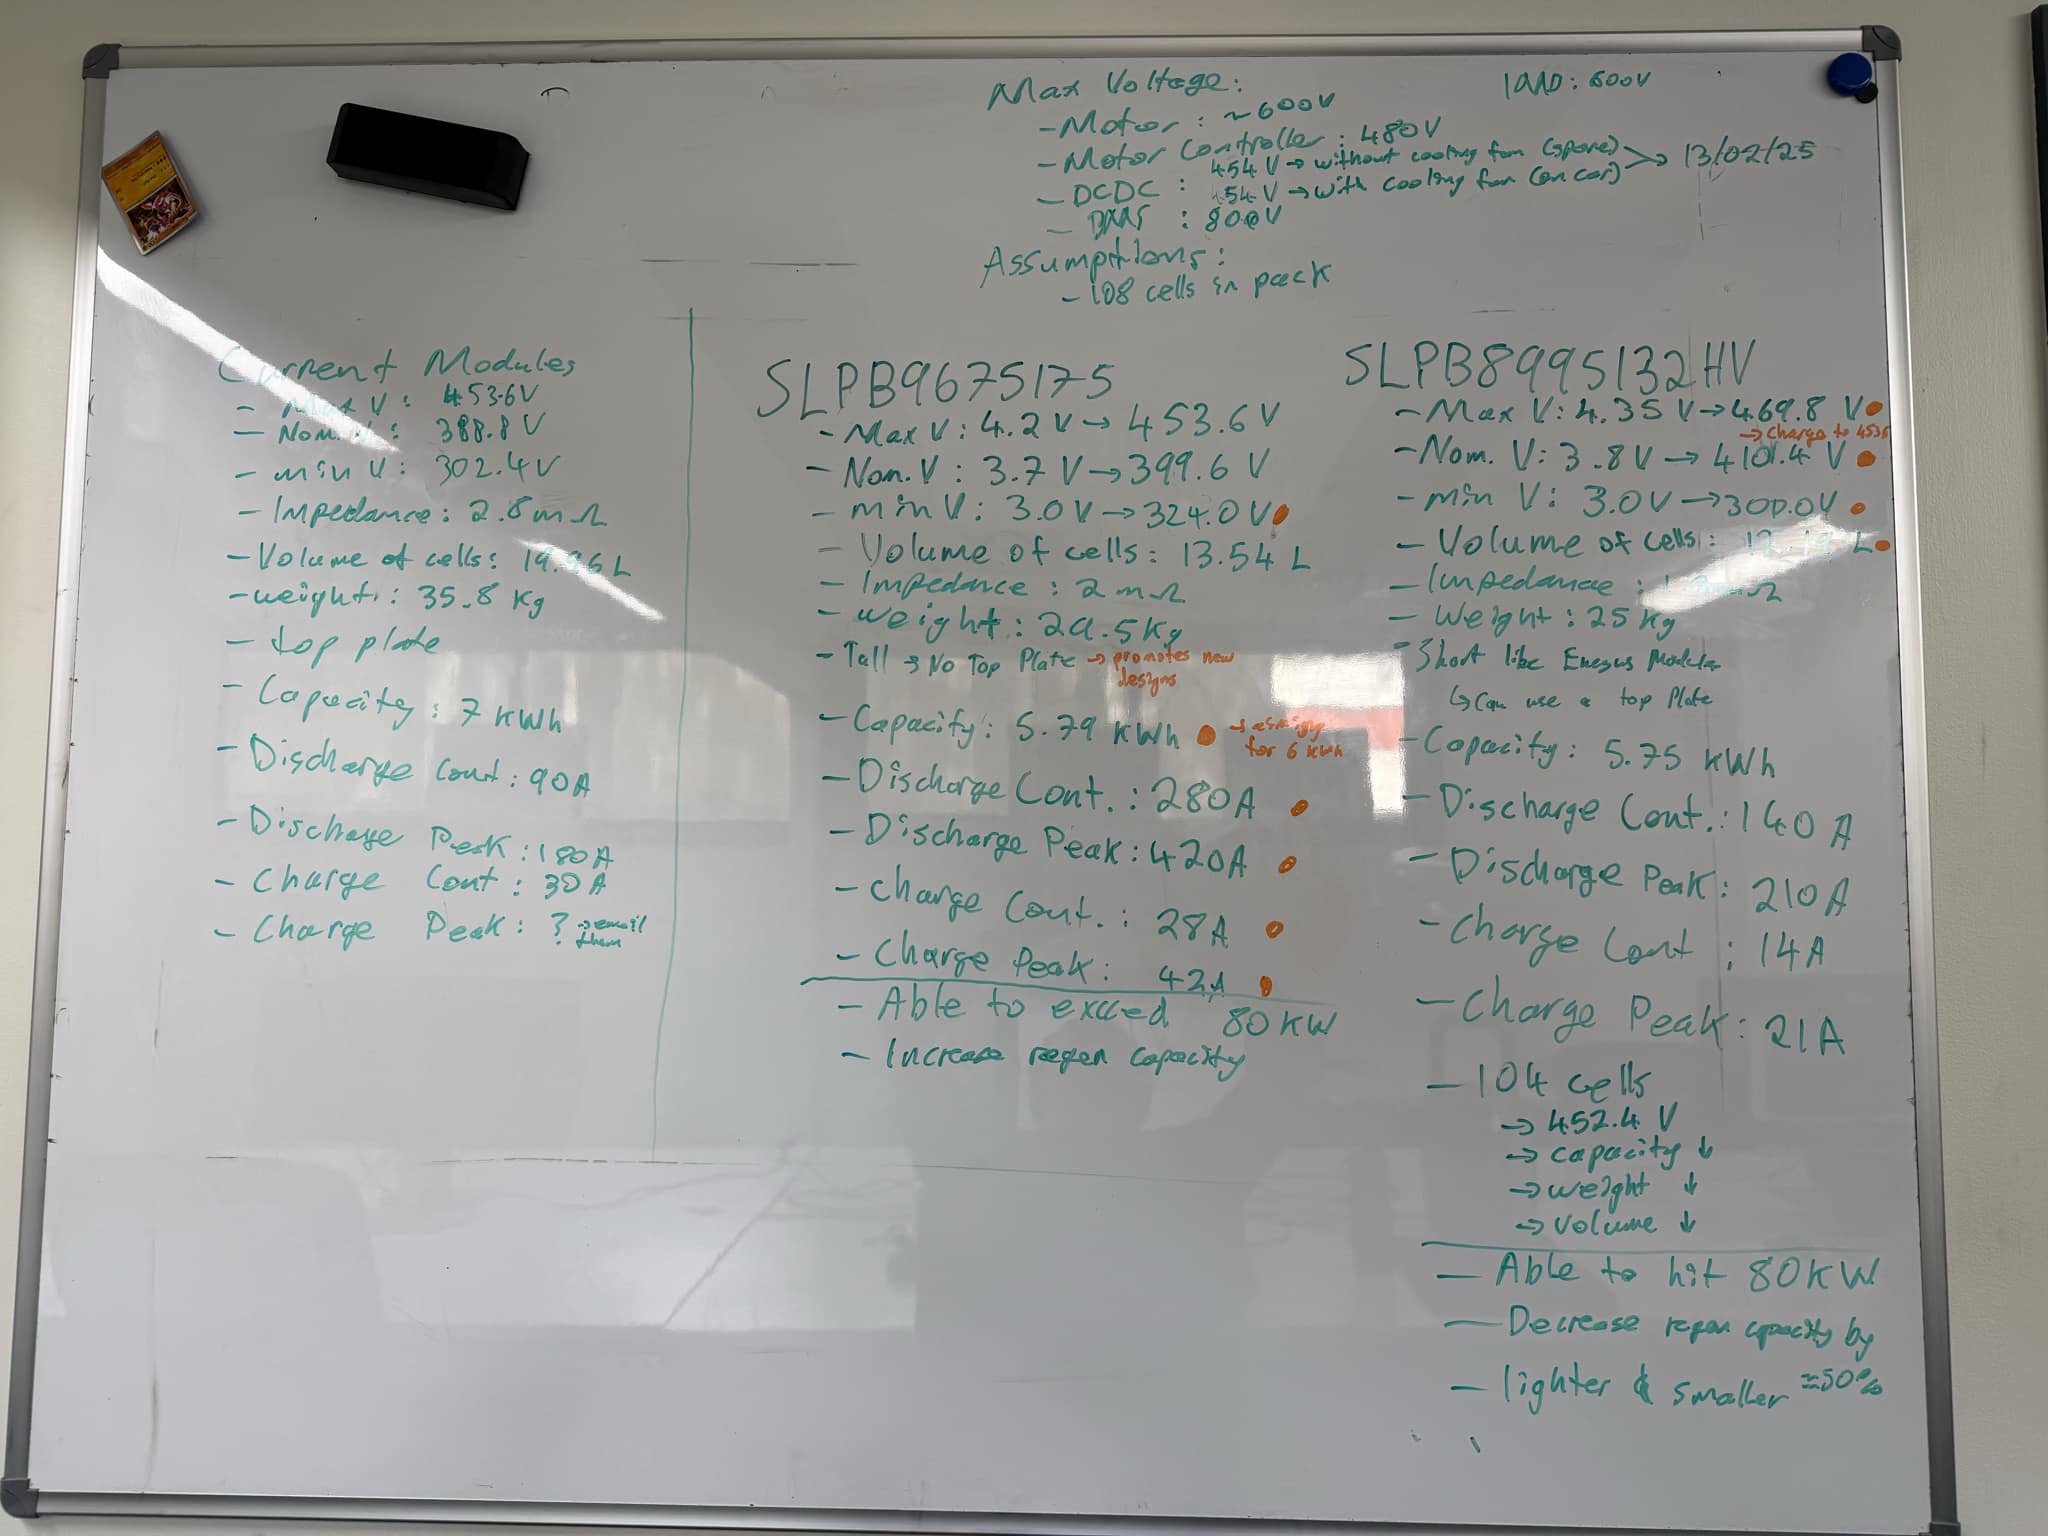 Max Voltage:
- Motor: ~600V
- Motor Controller: 480V
- DCDC : 454V → without cooling fan (spare)
454V → with cooling fan (on car) → 13/02/25
: 800V
: 600V
Assumptions:
- 108 cells in pack
Current Modules
- Max V: 453.6V
- Nom. V: 388.8V
- min V: 302.4V
- Impedance: 2.8mΩ
- Volume of cells: 19.96L
- weight: 35.8 Kg
- top plate
- Capacity: 7 KWh
- Discharge Cont: 90A
- Discharge Peak: 180A
- Charge Cont: 30A
- Charge Peak: ? → email them
SLPB9675175
- Max V: 4.2V → 453.6V
- Nom. V: 3.7V → 399.6 V
- min V: 3.0V → 324.0V
- Volume of cells: 13.54 L
- Impedance: 2mΩ
- weight: .5Kg
- Tall → No Top Plate → promotes new
designs
- Capacity: 5.79 KWh →
for 6 KWh
- Discharge Cont.: 280A
- Discharge Peak: 420A
- Charge Cont.: 28A
- Charge Peak: 42A
- Able to exceed 80KW
- Increase regen capacity
SLPB8995132HV
- Max V: 4.35 V → 469.8 V
→ Charge to
- Nom. V: 3.8V → V
- min V: 3.0V →
- Volume of cells: L
- Impedance: Ω
- Weight: 25Kg
- Short like Modules
↳ Can use a top Plate
- Capacity: 5.75 KWh
- Discharge Cont.: 140A
- Discharge Peak: 210A
- Charge Cont: 14A
- Charge Peak: 21A
- 104 cells
→ 452.4 V
→ capacity ↓
→ weight ↓
→ volume ↓
- Able to hit 80KW
- Decrease regen capacity by
≈50%
- lighter & smaller